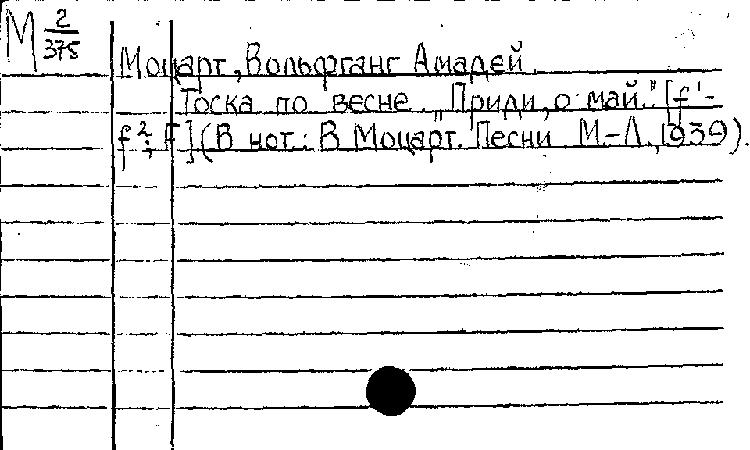 М 2/375
Моцарт, Вольфганг Амадей.
Тоска по весне. „Приди, о май." [f¹-
f²; F] (В нот.: В Моцарт. Песни М-Л., 1939).